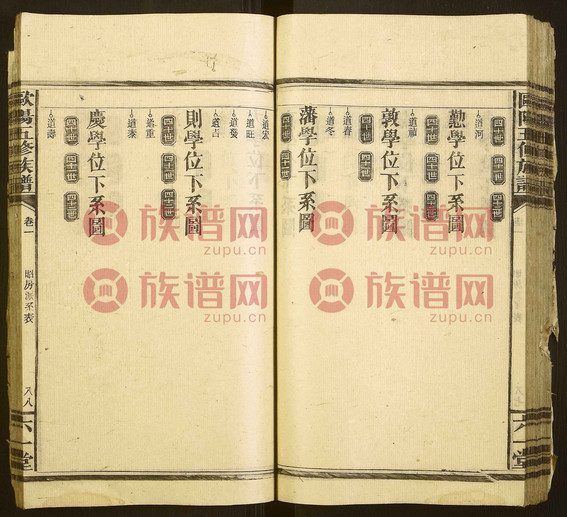 歐陽五修族譜
六一堂
道河
勤學位下系圖
四十世 四十一世 四十二世
道祿
敦學位下系圖
四十世 四十一世 四十二世
道春
道冬
藩學位下系圖
四十世 四十一世
道宏
道旺
道發
道吉
則學位下系圖
四十世 四十一世 四十二世
道重
道泰
慶學位下系圖
四十世 四十一世 四十二世
道壽
歐陽五修族譜
卷一
昭房派系表
六一堂
族谱网
zupu.cn
族谱网
zupu.cn
族谱网
zupu.cn
族谱网
zupu.cn